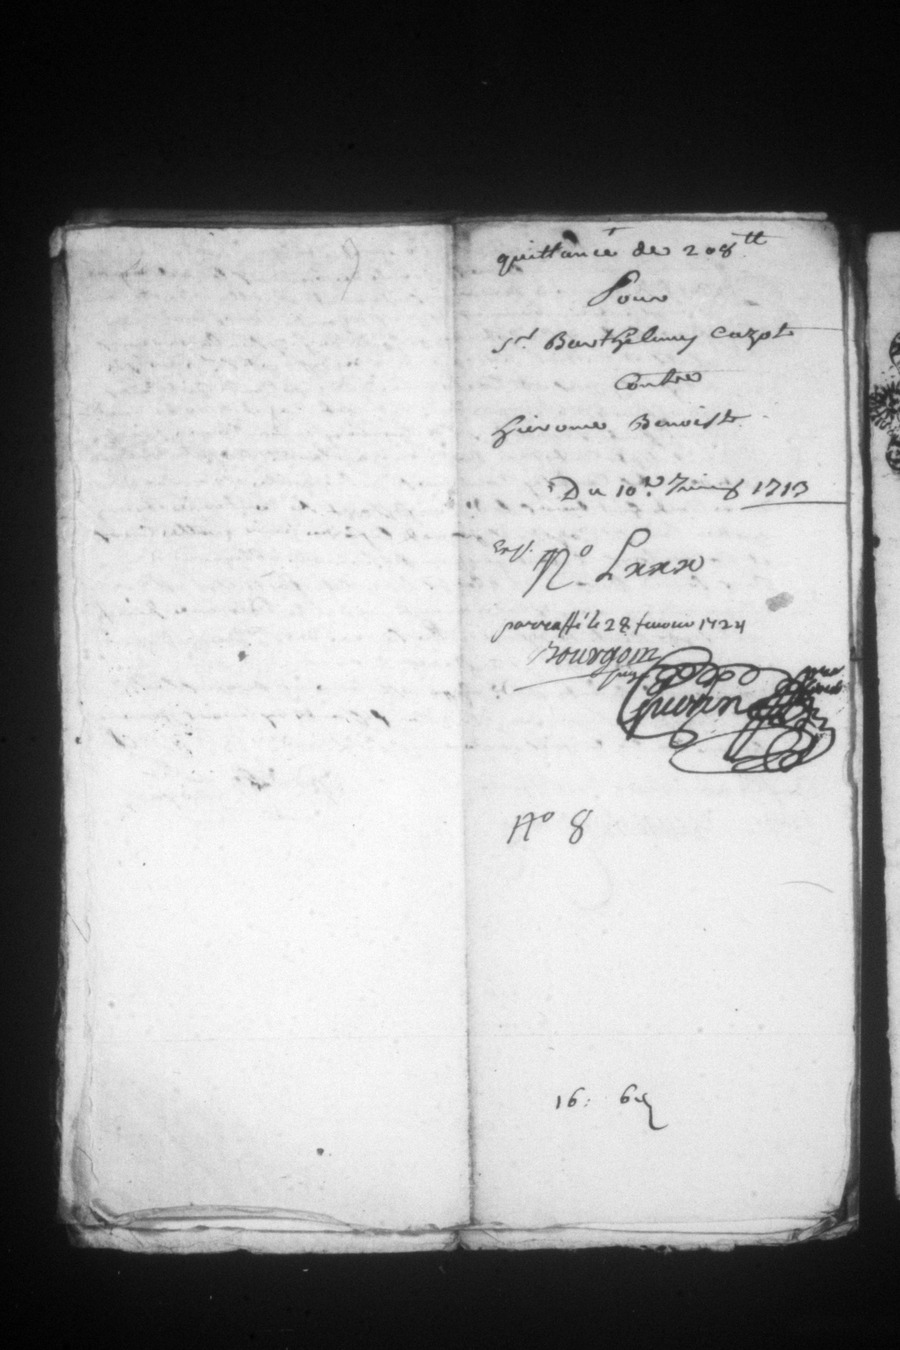 quittance de 208tt
Pour
Sr. Barthelemy Cazot
Contre
hierome Benoist
Du 10e. 1713
No Lxxx
parraffé le 28 feuvrier 1724
Bourgoin
Guerin
No 8
16: 6d